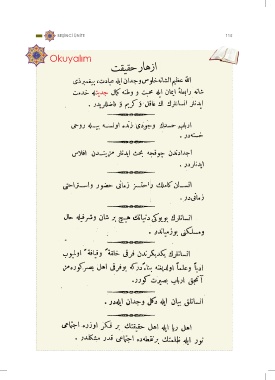 BEŞİNCİ ÜNİTE
Okuyalım
ازهار حقیقت
الله عظیم الشانه خلوص وجدان ایله عبادت، پیغمبر ذی
شانه رابطهٔ ایمان ایله محبت و وطنه کمال جدیتله خدمت
ایدنلر انسانلرك ڭ عاقل و کریم و فاضللریدر .
اربابِ حسدڭ وجودی زنده اولسه بیله روحی
خسته در .
اجدادندن چوقجه بحث ایدنلر مزیتدن افلاس
ایدنلردر .
انسان کاملك راحتسز زمانی حضور و استراحتی
زمانی در .
انسانلرك بویوکی دنیانڭ هیچ بر شان و شرفیله حال
و مسلکنی بوزمیاندر .
انسانلرك یکدیکرندن فرقی خلقة و قیافة اولمیوب
ادباً و علماً اولدیغنه بناءً درکه بو فرقی اهل بصر کوره مز
آنجق ارباب بصیرت کورر .
انسانلق بیان ایله دکل وجدان ایله در .
اهل ریا ایله اهل حقیقتڭ بر فکر اوزره اجتماعی
نور ایله ظلمتڭ بر نقطه ده اجتماعی قدر مشکلدر .